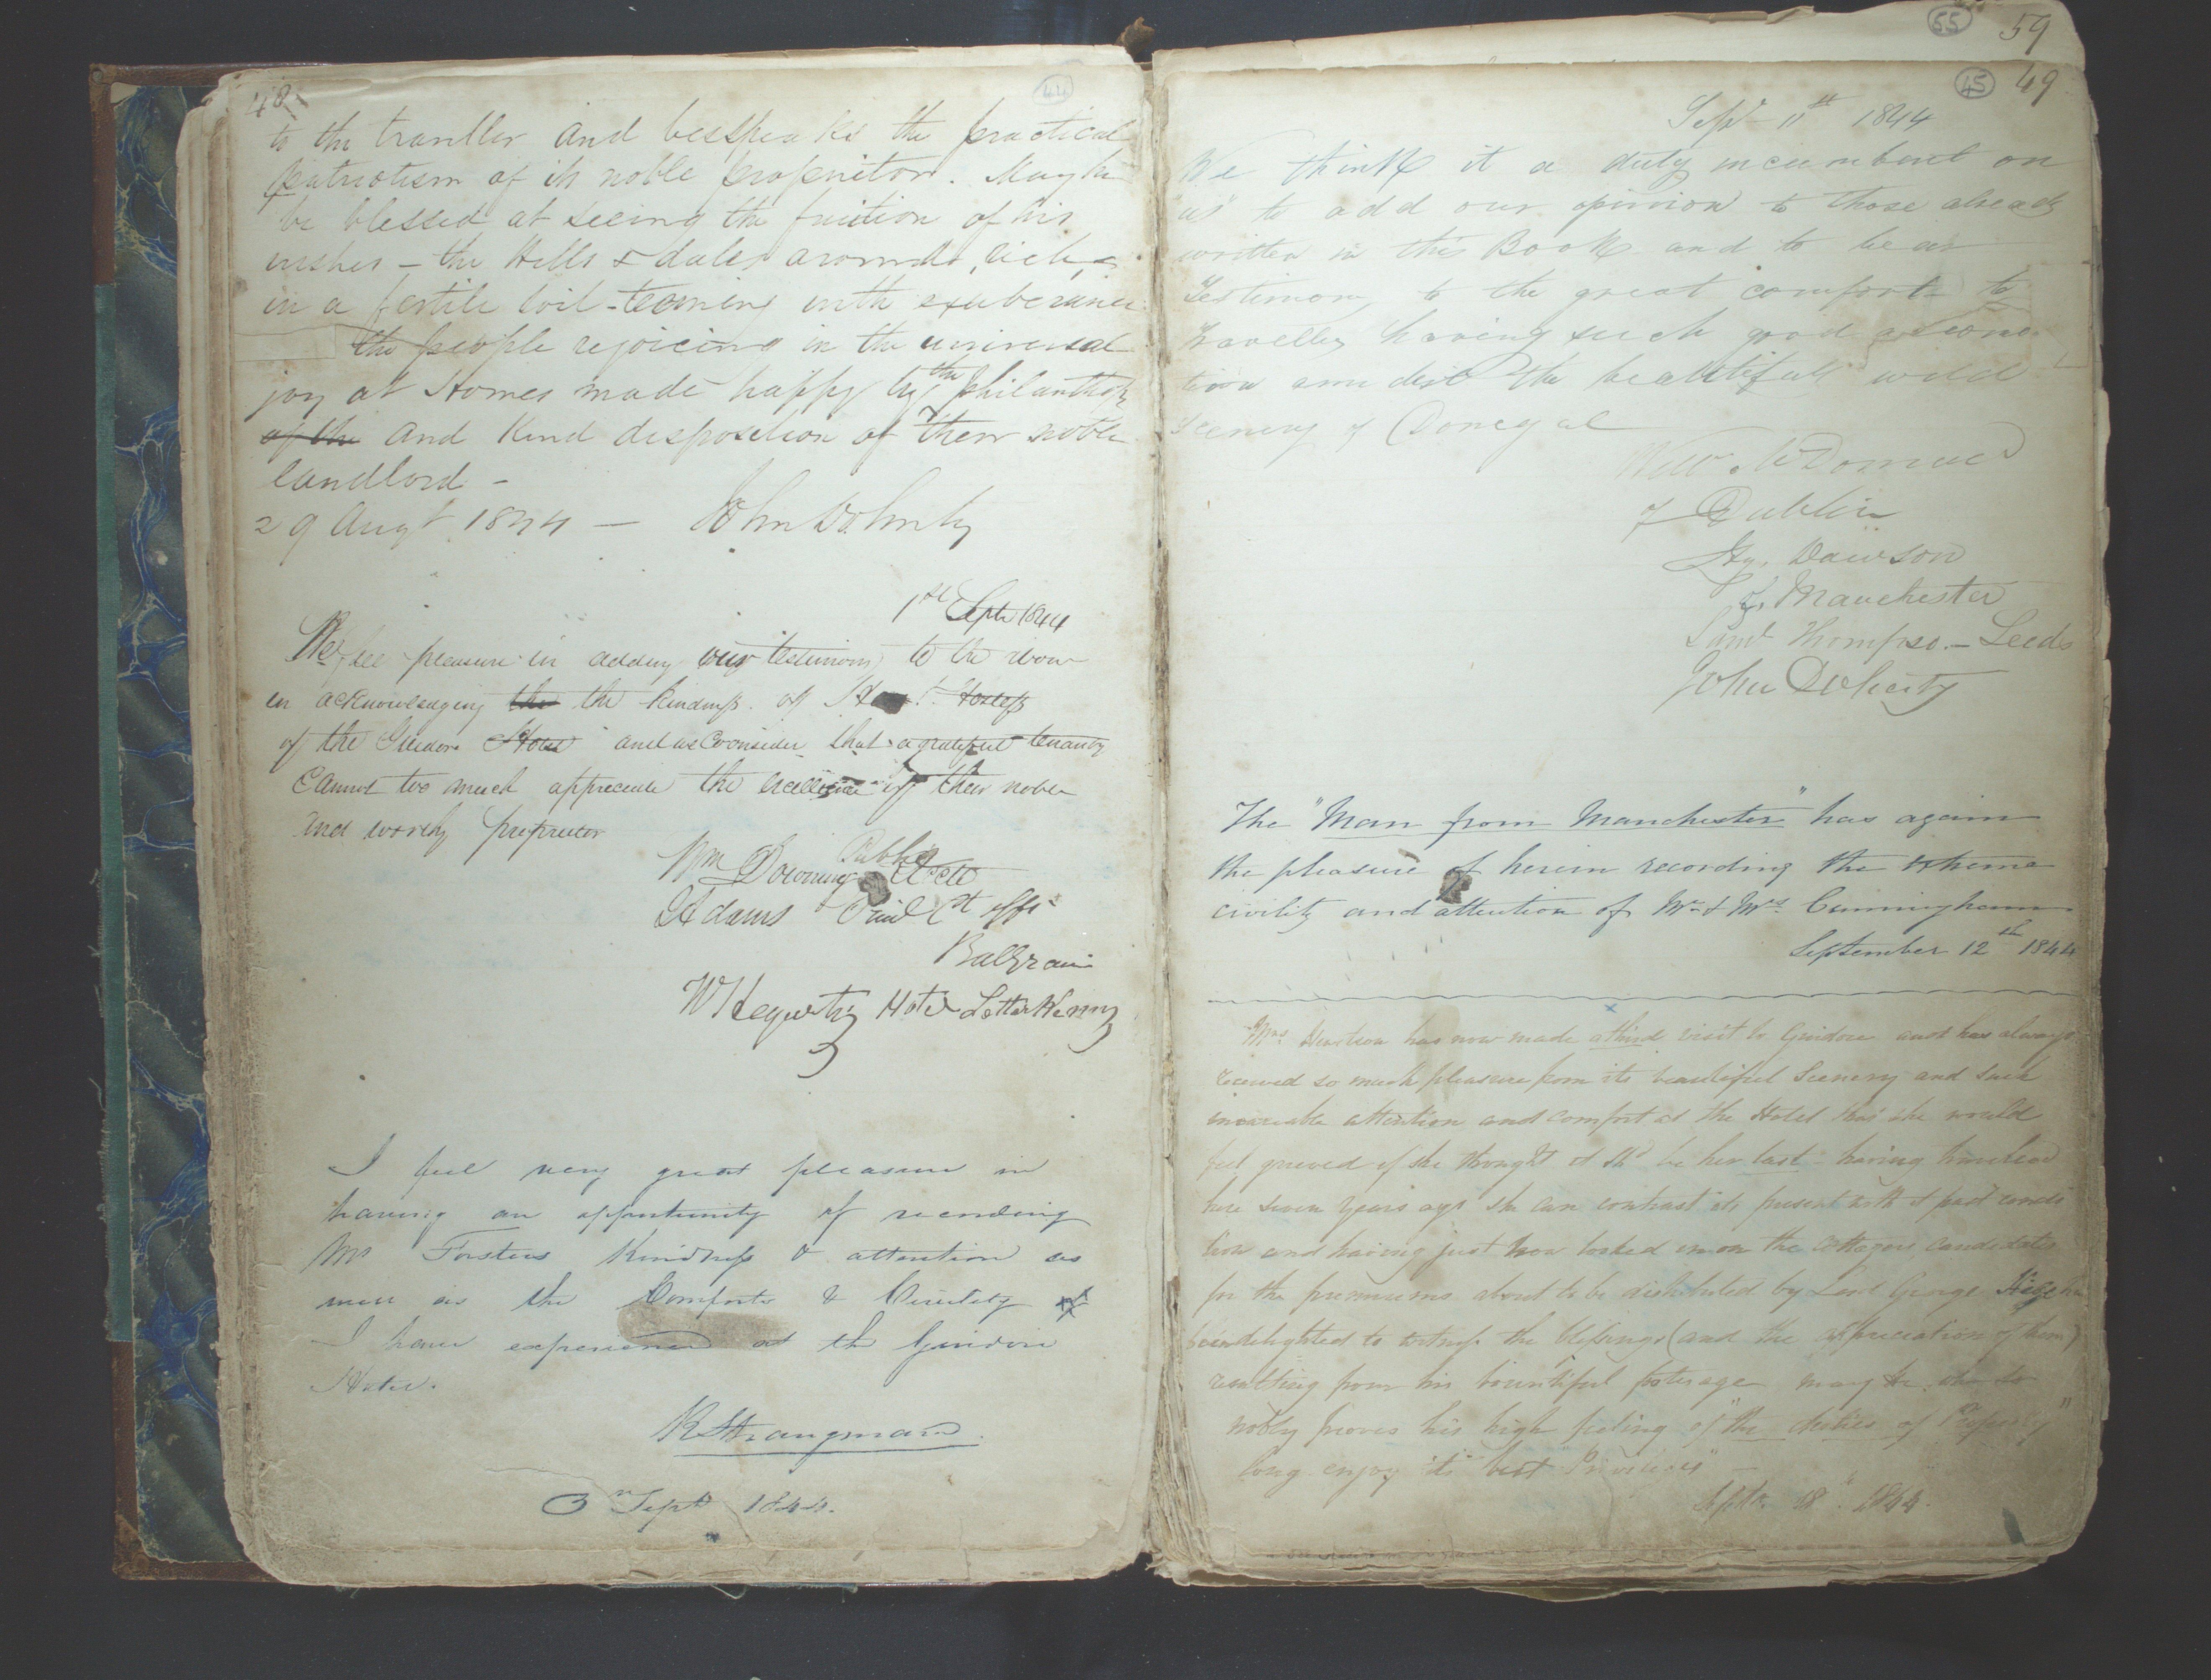 48
44
to the traveller and bespeaks the practical
patriotism of its noble proprietor. May he
be blessed at seeing the fruition of his
wishes – the Hills & dales around, rich
in a fertile soil – teeming with exuberance
the people rejoicing in the universal
joy at Homes made happy by the philanthropy
of the and Kind disposition of their noble
landlord –
29 Augt 1844 – John Doherty
1st Septr 1844
We feel pleasure in adding our testimony to the above
in acknowledging the the kindness of Host Hostess
of the Guidore Hotel and we consider that a grateful tenantry
Cannot too much appreciate the excellence of their noble
and worthy proprietor
Wm Downing
Adams
W Hegarty Hotel Letterkenny
I feel very great pleasure in
having an opportunity of recording
Mr Forsters Kindness & attention as
well as the Comforts & Civility
I have experienced at the Guidore
Hotel.
R Strangman
3rd Septr 1844.
55 59
45 49
Sept 11th 1844
We think it a duty incumbent on
us to add our opinion to those already
written in this Book and to bear
Testimony to the great comfort to
travellers having such good accomo
tion amidst the beautiful wild
Scenery of Donegal
of Dublin
Hy. Dawson
of Manchester
Saml Thompson – Leeds
John Doherty
The "Man from Manchester" has again
the pleasure of herein recording the extreme
civility and attention of Mr & Mrs Cunningham.
September 12th 1844
Mrs has now made a third visit to Guidore and has always
received so much pleasure from its beautiful Scenery and such
invariable attention and comfort at the Hotel that she would
feel grieved if she thought it shd be her last – having
here seven years ago she can contrast its present with its past condi
tion and having just now looked in on the cottagers, candidates
for the premiums about to be distributed by Lord George Hill
been delighted to witness the blessings (and the appreciation of them)
resulting from his bountiful fosterage may he who so
nobly proves his high feeling of "the duties of Property"
long enjoy its best "Privileges" –
Septr. 18th 1844.